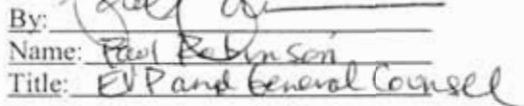 By:
Name: Paul Robinson
Title: EVP and General Counsel